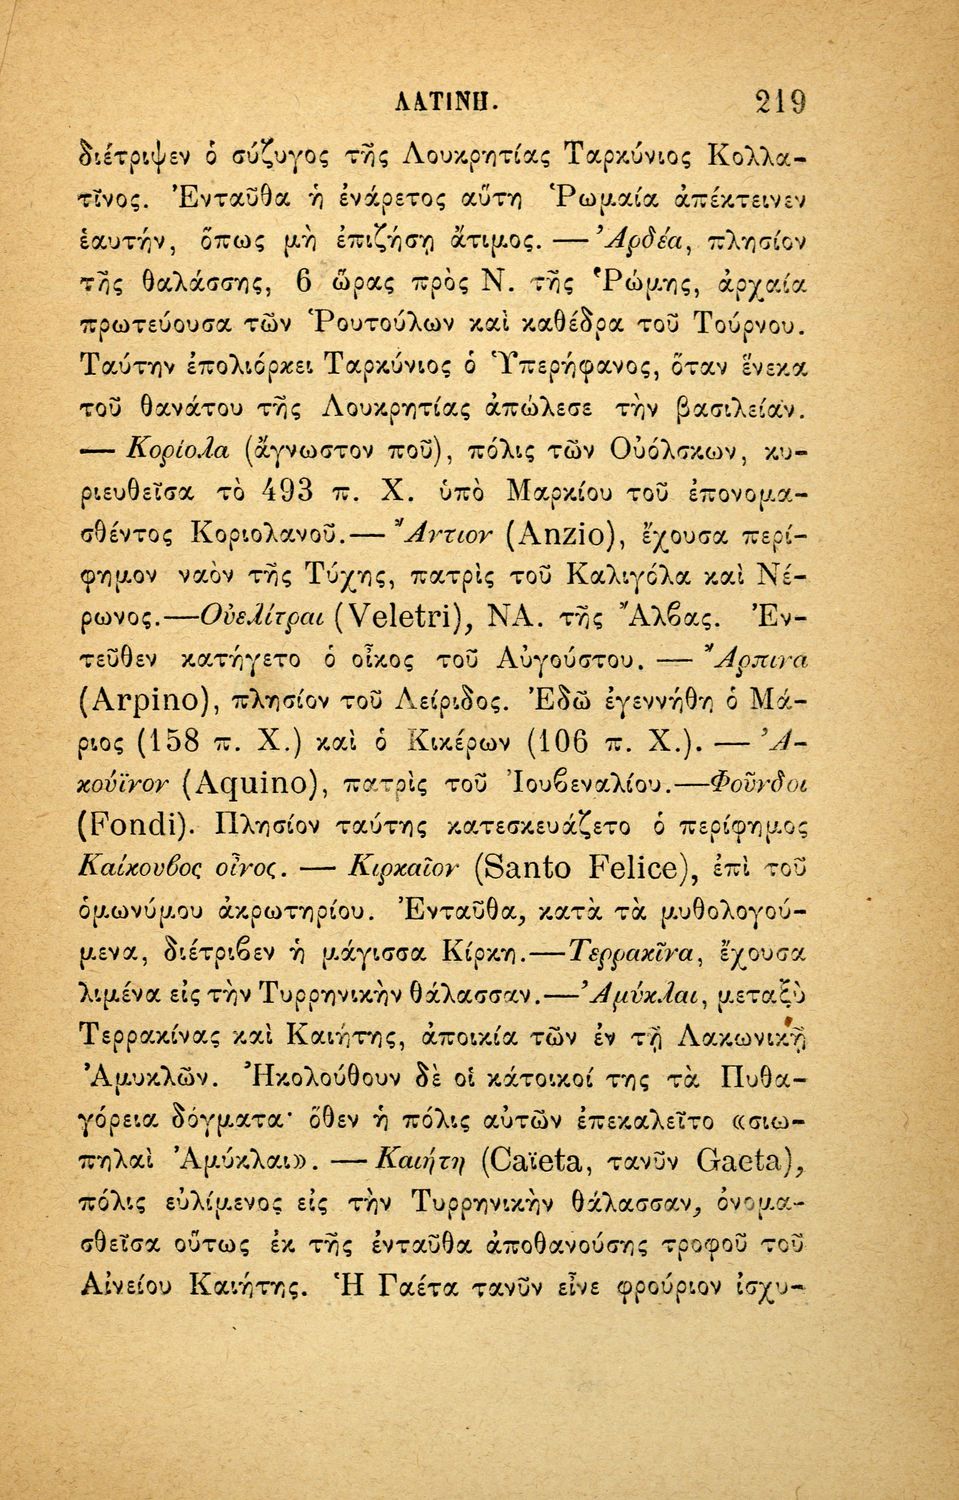 ΛΑΤΙΝΗ. 219
διέτριψεν ὁ σύζυγος τῆς Λουκρητίας Ταρκύνιος Κολλα-
τῖνος. Ἐνταῦθα ἡ ἐνάρετος αὕτη Ῥωμαία ἀπέκτεινεν
ἑαυτήν, ὅπως μὴ ἐπιζήσῃ ἄτιμος. — Ἀρδέα, πλησίον
τῆς θαλάσσης, 6 ὥρας πρὸς Ν. τῆς Ῥώμης, ἀρχαία
πρωτεύουσα τῶν Ῥουτούλων καὶ καθέδρα τοῦ Τούρνου.
Ταύτην ἐπολιόρκει Ταρκύνιος ὁ Ὑπερήφανος, ὅταν ἕνεκα
τοῦ θανάτου τῆς Λουκρητίας ἀπώλεσε τὴν βασιλείαν.
— Κορίολα (ἄγνωστον ποῦ), πόλις τῶν Οὐόλσκων, κυ-
ριευθεῖσα τὸ 493 π. Χ. ὑπὸ Μαρκίου τοῦ ἐπονομα-
σθέντος Κοριολανοῦ.— Ἄντιον (Anzio), ἔχουσα περί-
φημον ναὸν τῆς Τύχης, πατρὶς τοῦ Καλιγόλα καὶ Νέ-
ρωνος.—Οὐελίτραι (Veletri), ΝΑ. τῆς Ἄλβας. Ἐν-
τεῦθεν κατήγετο ὁ οἶκος τοῦ Αὐγούστου. — Ἄρπινα
(Arpino), πλησίον τοῦ Λείριδος. Ἐδῶ ἐγεννήθη ὁ Μά-
ριος (158 π. Χ.) καὶ ὁ Κικέρων (106 π. Χ.). — Ἀ-
κούϊνον (Aquino), πατρὶς τοῦ Ἰουβεναλίου.—Φοῦνδοι
(Fondi). Πλησίον ταύτης κατεσκευάζετο ὁ περίφημος
Καίκουβος οἶνος. — Κιρκαῖον (Santo Felice), ἐπὶ τοῦ
ὁμωνύμου ἀκρωτηρίου. Ἐνταῦθα, κατὰ τὰ μυθολογού-
μενα, διέτριβεν ἡ μάγισσα Κίρκη.—Τερρακῖνα, ἔχουσα
λιμένα εἰς τὴν Τυρρηνικὴν θάλασσαν.—Ἀμύκλαι, μεταξὺ
Τερρακίνας καὶ Καιήτης, ἀποικία τῶν ἐν τῇ Λακωνικῇ
Ἀμυκλῶν. Ἠκολούθουν δὲ οἱ κάτοικοί της τὰ Πυθα-
γόρεια δόγματα· ὅθεν ἡ πόλις αὐτῶν ἐπεκαλεῖτο «σιω-
πηλαὶ Ἀμύκλαι». — Καιήτη (Caïeta, τανῦν Gaeta),
πόλις εὐλίμενος εἰς τὴν Τυρρηνικὴν θάλασσαν, ὀνομα-
σθεῖσα οὕτως ἐκ τῆς ἐνταῦθα ἀποθανούσης τροφοῦ τοῦ
Αἰνείου Καιήτης. Ἡ Γαέτα τανῦν εἶνε φρούριον ἰσχυ-